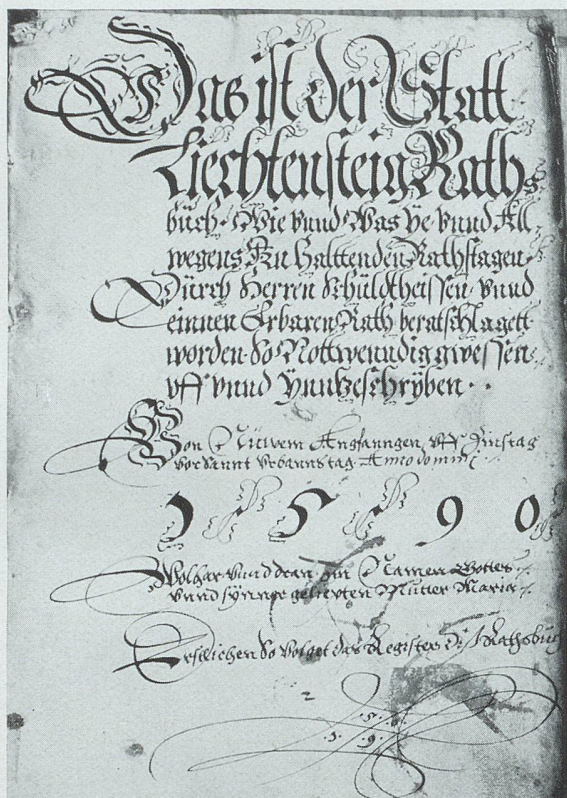 Das ist der Statt
Liechtensteig Raths
buch. Wie vnnd Was Ye vnnd All
wegens Zu Halttenden Rathstagen.
Durch Herren Schuldtheissen vnnd
einnen Erbaren Rath beratschlagett
worden. So Nottwenndig gwessen
vff vnnd Ynnzeschryben..
Von Nüwem Angfanngen, vff Zinstag
vor Sannt Vrbannstag Anno domini
1590
Wolhar vnnd dran in Namen Gottes
vnnd synner geliepten Mutter Maria
Erstlichen So Volget das Register Rathsbuch
2
. 5 .
. 5 . 9 .